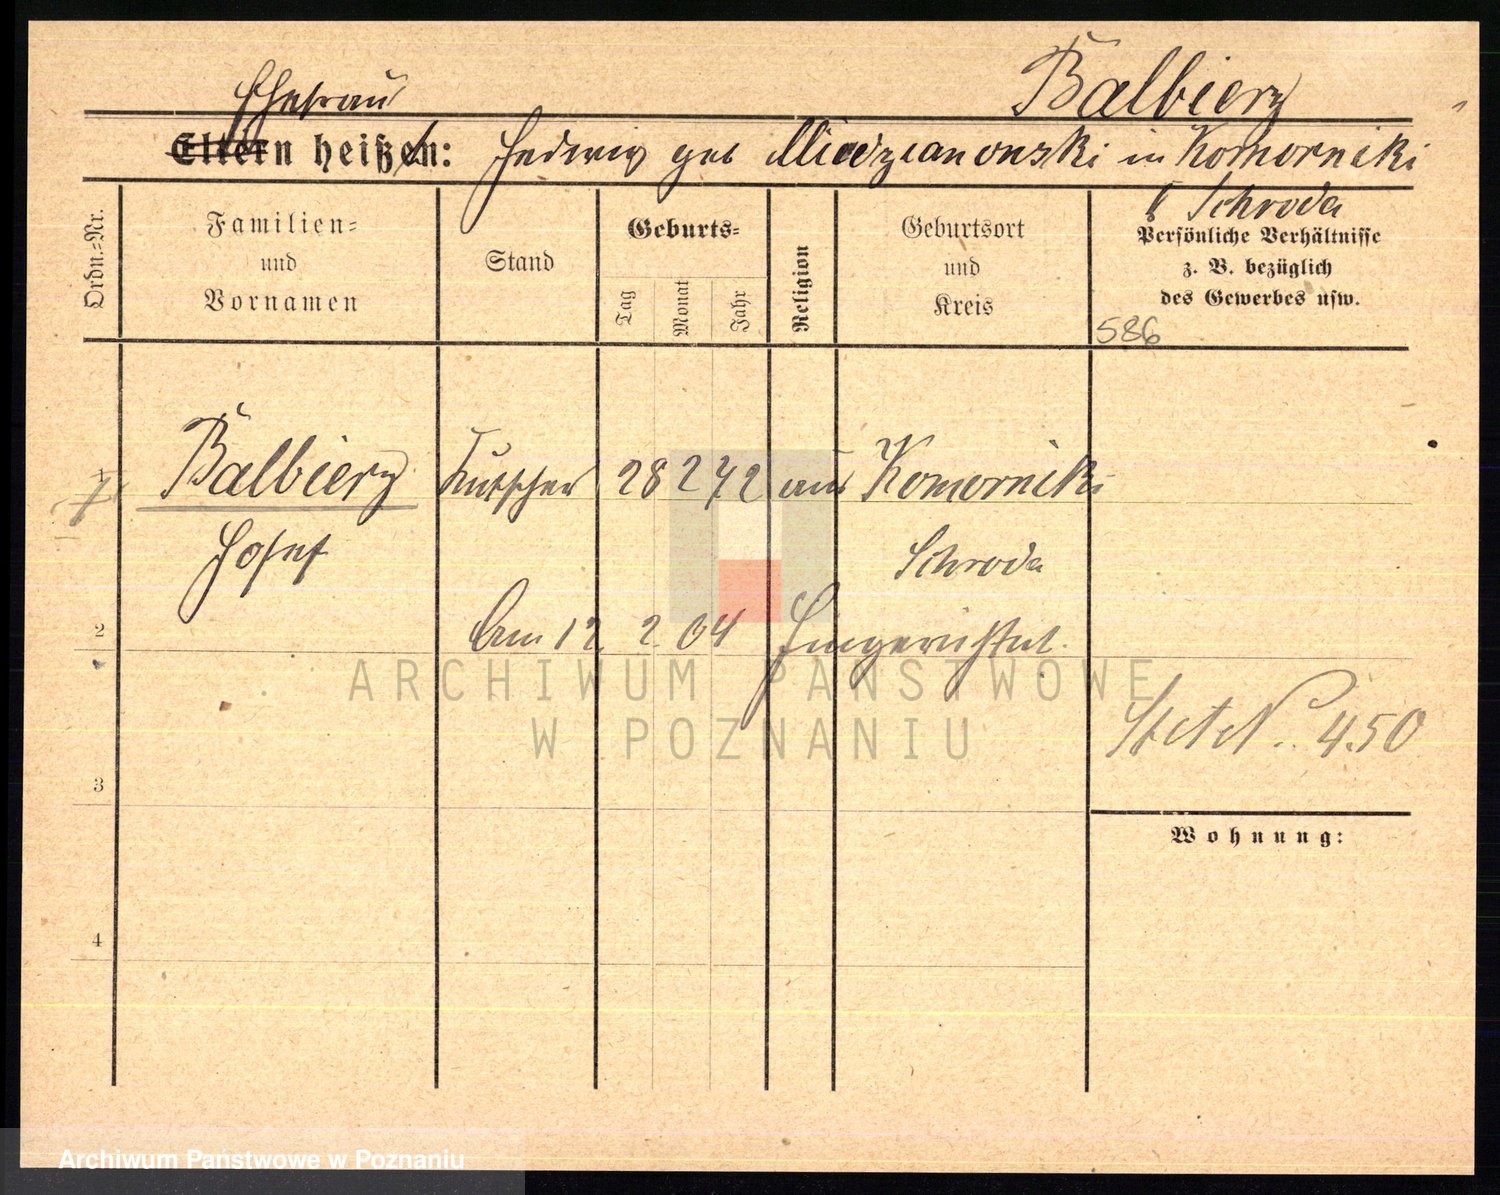 Balbierz
Ehefrau
Eltern heißen: Hedwig geb Miedzianowski in Komorniki
Schroda
Ordn.-Nr.
Familien-
und
Vornamen
Stand
Geburts-
Tag
Monat
Jahr
Religion
Geburtsort
und
Kreis
Persönliche Verhältnisse
z. B. bezüglich
des Gewerbes usw.
586
1
Balbierz Kutscher 28 2 72 aus Komorniki
Josef Schroda
2
Am 12 2 04
ARCHIWUM PAŃSTWOWE
W POZNANIU
450
3
Wohnung:
4
Archiwum Państwowe w Poznaniu